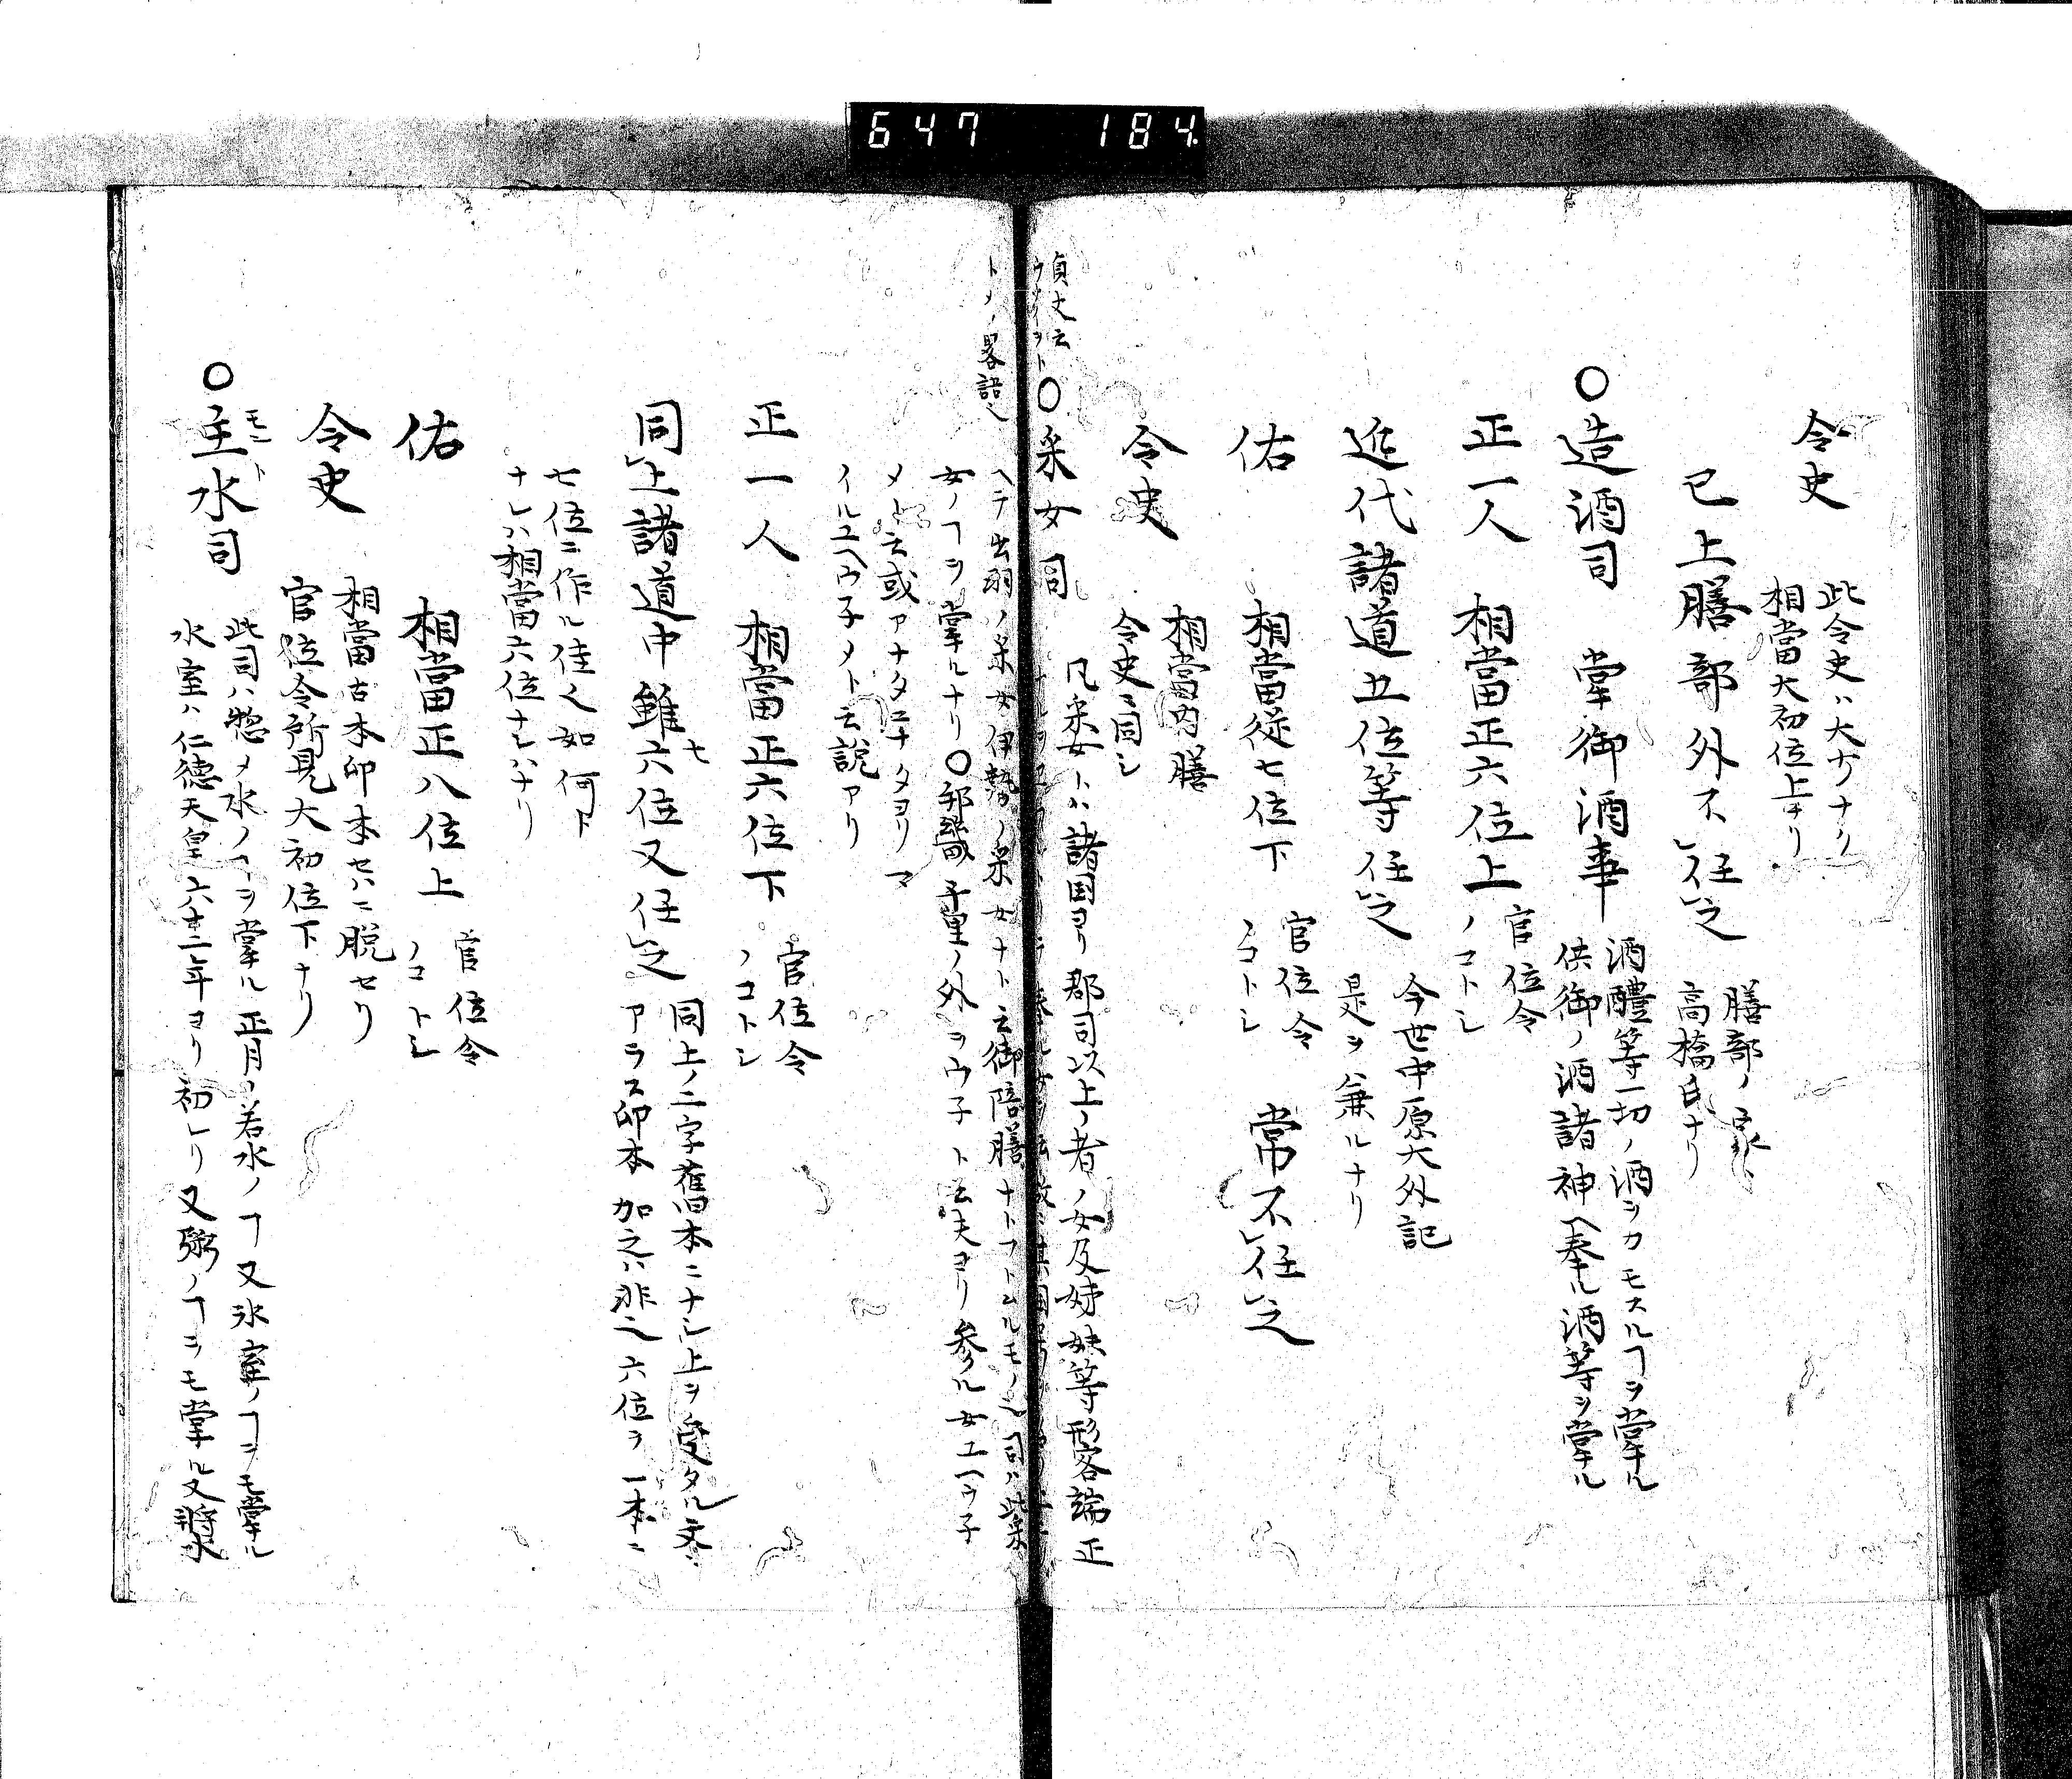 647 184
令史
此令史ハ大サクナリ
相當大初位上ナリ
已上膳部外不レ任レ之
膳部ノ
高橋氏ナリ
〇造酒司 掌御酒事
酒醴等一切ノ酒ヲカモスルヿヲ掌ル
供御ノ酒諸神ヘ奉ル酒等ヲ掌ル
正一人 相當正六位上
官位令
ノコトシ
近代諸道五位等任レ之
今世中原大外記
是ヲ兼ルナリ
佑 相當従七位下
官位令
ノコトシ
常不レ任レ之
令史
相當内膳
令史ニ同シ
貞丈云
〇采女司
凡采女トハ諸国ヨリ郡司以上ノ者ノ女及姉妹等形容端正
トメノ畧語也
ヘテ出羽ノ采女伊勢ノ采女ナト云御陪膳ナト
司ハ此采
女ノヿヲ掌ルナリ〇邦畿千里ノ外ヲウ子ト云夫ヨリ参ル女ユヘウ子
メト云或アナタコナタヨリマ
イルユヘウ子メト云説アリ
正一人 相當正六位下
官位令
ノコトシ
同レ上諸道中雖六位又任レ之
七
同上ノ二字舊本ニナシ上ヲ受タル文ニ
アラス印本加之ハ非也六位ヲ一本ニ
七位ニ作ル佳也如何ト
ナレハ相當六位ナレハナリ
佑 相當正八位上
官位令
ノコトシ
令史
相當古本印本セハニ脱セリ
官位令所見大初位下ナリ
〇主水司
モント
此司ハ惣メ水ノヿヲ掌ル正月ノ若水ノヿ又氷室ノヿヲモ掌ル
氷室ハ仁徳天皇六十二年ヨリ初レリ又粥ノヿヲモ掌ル又漿水